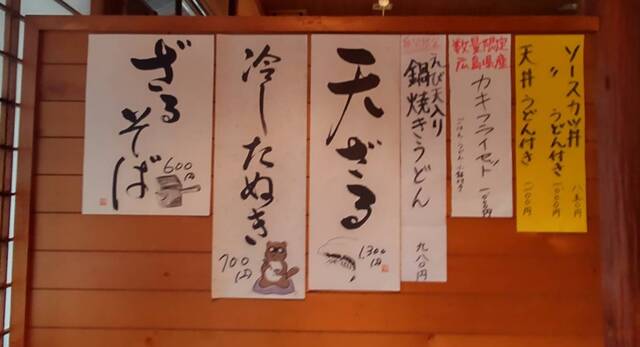 ソースカツ丼 八五〇円
〃 うどん付き 一〇〇〇円
天丼 うどん付き 一一〇〇円
数量限定
広島県産
カキフライセット
ごはん うどん 小鉢付き
えび天入り
鍋焼きうどん
九八〇円
天ざる
1,300円
冷したぬき
700円
ざるそば
600円